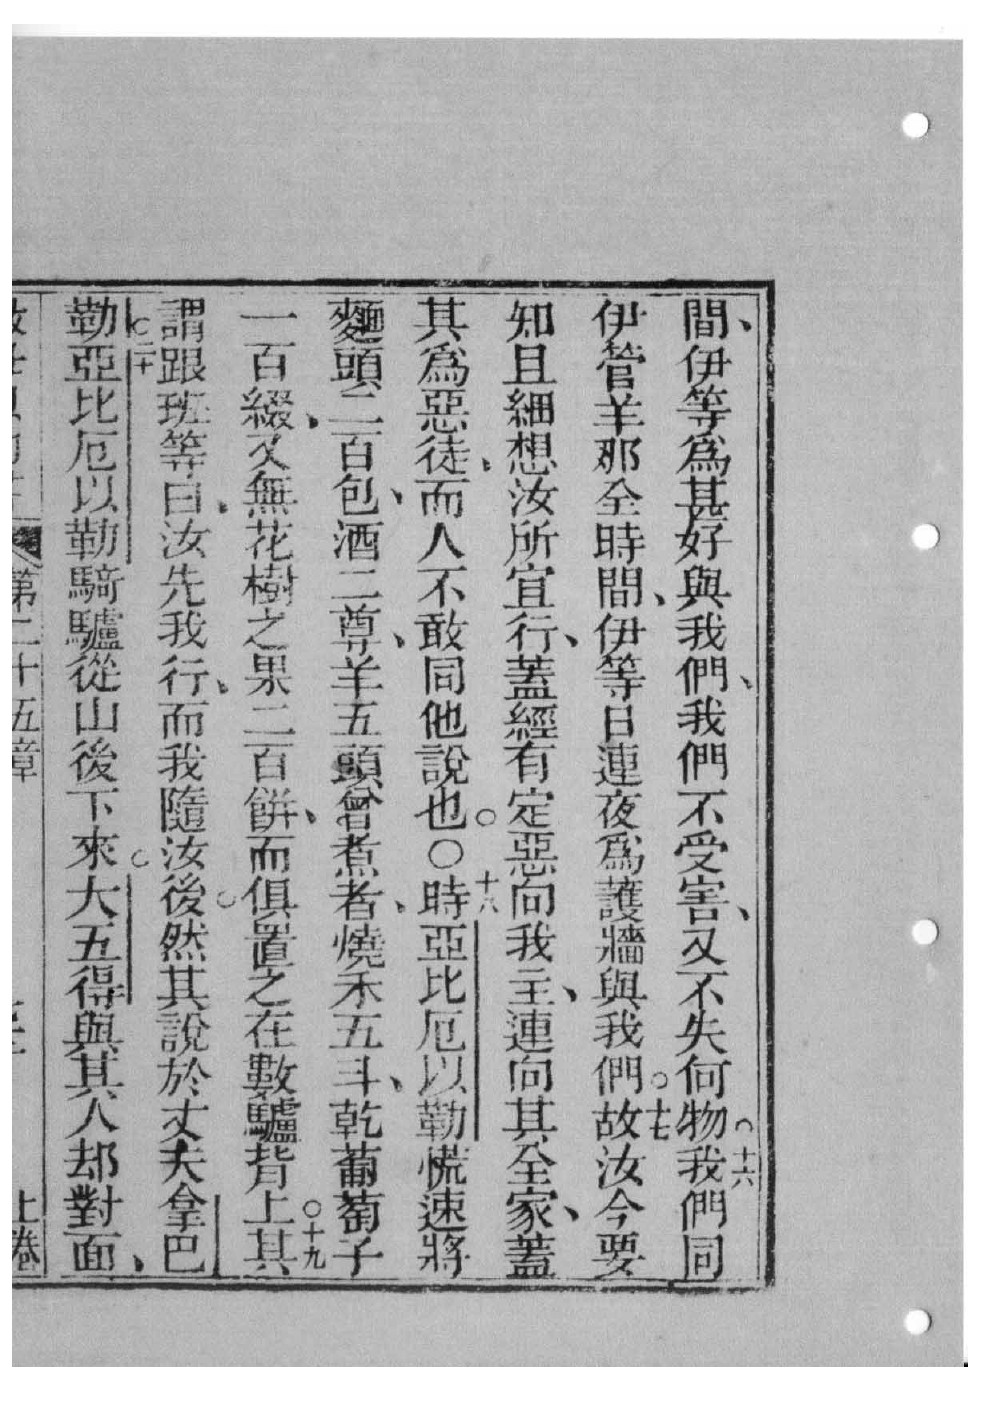 間、伊等爲甚好與我們、我們不受害、又不失何物。十六我們同
伊管羊那全時間、伊等日連夜爲護牆與我們。十七故汝今要
知且細想汝所宜行、蓋經有定惡向我主、連向其全家、蓋
其爲惡徒、而人不敢同他說也。○十八時亞比厄以勒慌速將
麵頭二百包、酒二尊、羊五頭曾煮者、燒禾五斗、乾葡萄子
一百綴、又無花樹之果二百餅、而俱置之在數驢背上。十九其
謂跟班等曰、汝先我行、而我隨汝後。然其說於丈夫拿巴
勒。二十亞比厄以勒騎驢從山後下來。大五得與其人却對面、
第二十五章
上卷